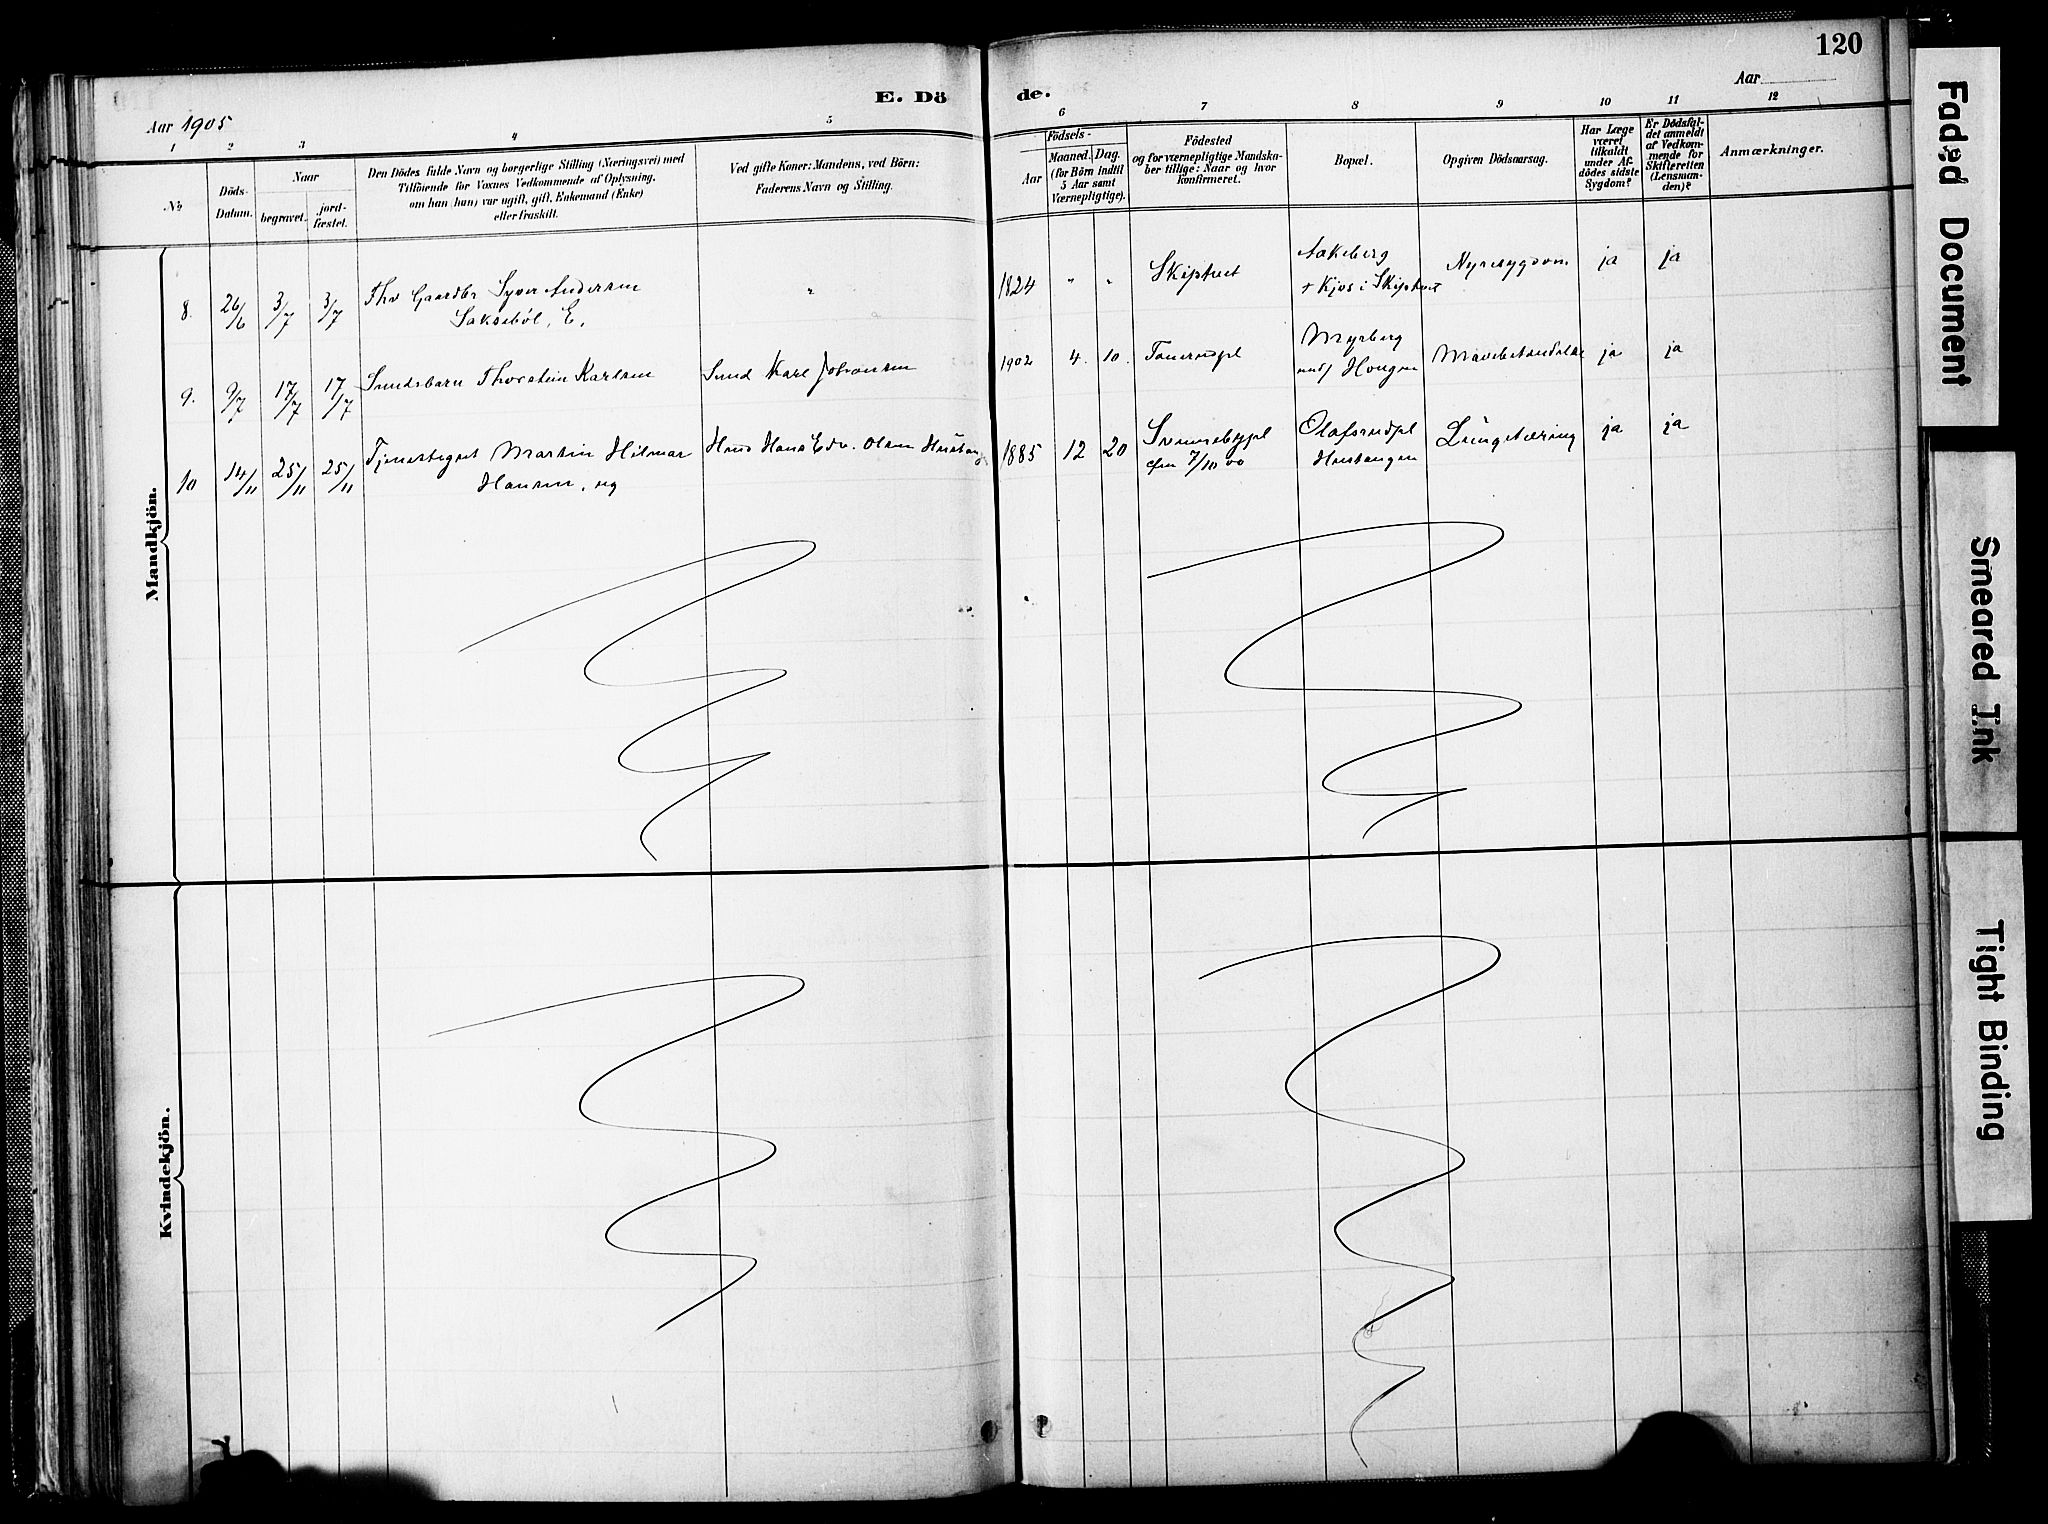 120
E. Dö de.
Aar 1905
Aar
1 2 3 4 5 6 7 8 9 10 11 12
No
Döds-
Datum.
Naar
begravet.
jord-
fæstet.
Den Dödes fulde Navn og borgerlige Stilling (Næringsvei) med
Tilföiende for Voxnes Vedkommende af Oplysning,
om han (hun) var ugift, gift, Enkemand (Enke)
eller fraskilt.
Ved gifte Koner: Mandens, ved Börn:
Faderens Navn og Stilling.
Födsels-
Aar
Maaned.
Dag.
(for Börn indtil
5 Aar samt
Værnepligtige).
Födested
og for værnepligtige Mandska-
ber tillige: Naar og hvor
konfirmeret.
Bopæl.
Opgiven Dödsaarsag.
Har Læge
været
tilkaldt
under Af-
dödes sidste
Sygdom?
Er Dödsfal-
det anmeldt
af Vedkom-
mende for
Skifteretten
(Lensman-
den)?
Anmærkninger.
Mandkjön.
8. 26/6 3/7 3/7 Fhv Gaardbr Syver Andersen " 1824 " " Skiptvet Aakeberg Nyresygdom ja ja
Saksebøl, E. + Kjos i Skiptvet
9. 9/7 17/7 17/7 Thorstein Karlsen Karl Johansen 1902 4. 10. Myrberg ja ja
Hougen
10 14/11 25/11 25/11 Martin Hilmar Hans Edv. Olsen 1885 12 20 Lungetæring ja ja
Hansen, ug 7/10 00
Kvindekjön.
Faded Document
Smeared Ink
Tight Binding